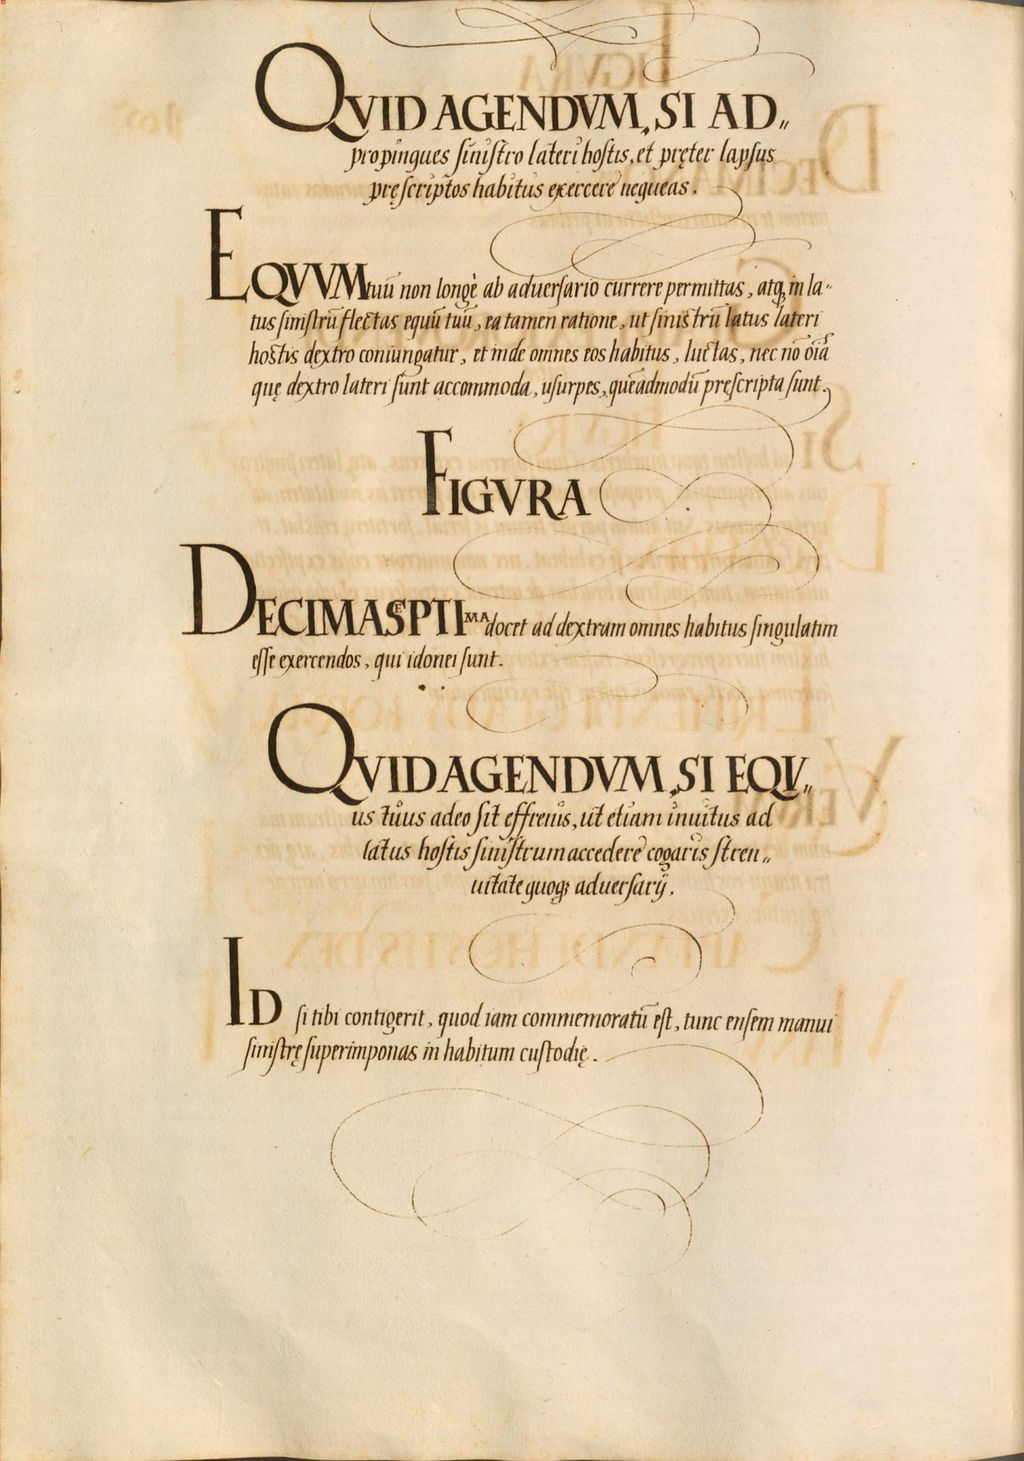 QVID AGENDVM, SI AD„
propinques sinistro lateri hostis, et pręter lapsus
pręscriptos habitus exercere nequeas.
EQVVM tuũ non longè ab aduersario currere permittas, atq; in la„
tus sinistrũ flectas equũ tuũ, ea tamen ratione, ut sinistrũ latus lateri
hostis dextro coniungatur, et inde omnes eos habitus, luctas, nec nõ oĩa
quę dextro lateri sunt accommoda, usurpes, quẽadmodũ pręscripta sunt.
FIGVRA
DECIMASEPTIMA docet ad dextram omnes habitus singulatim
esse exercendos, qui idonei sunt.
QVID AGENDVM, SI EQV„
us tuus adeo sit effrenis, ut etiam inuitus ad
latus hostis sinistrum accedere cogaris stren„
uitate quoq; aduersarij.
ID si tibi contigerit, quod iam commemoratũ est, tunc ensem manui
sinistrę superimponas in habitum custodię.